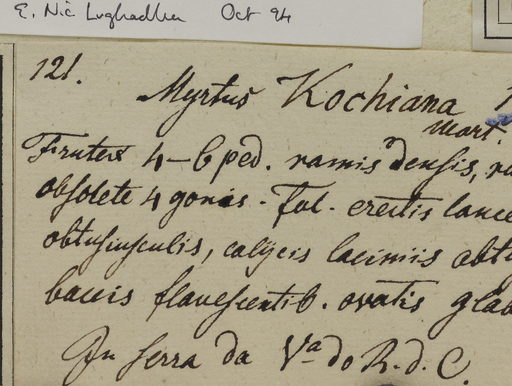 E. Nic Lughadha Oct 94
121.
Myrtus Kochiana
Mart.
Frutex 4-6 ped. ramis densis,
obsolete 4 gonis. Fol. erectis lance
obtusiusculis, calycis laciniis obtu
baccis flavescentib. ovatis glab
In Serra da Vᵃ do R. d. C.